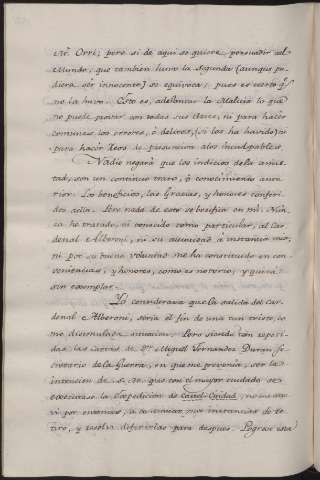 Mr. Orri; pero si de aqui se quiere persuadir al
Mundo, que tambien huvo la segunda (aunque pu-
diera ser innocente) se equivoca; pues es cierto q.e
no la huvo. Esto es, adelantar la Malicia lo que
no puede provar con todas sus Artes, ni para hacer
comunes los errores, ò delitos, (si los ha havido) ni
para hacer Reos de presuncion alos inculpables.
Nadie negarà que los indicios dela amis-
tad, son un continuo trato, ò conocimiento ante-
rior. Los beneficios, las Gracias, y honores conferi-
dos della. Pero nada de esto se verifica en mi. Nun-
ca he tratado, ni conocido como particular, al Car-
denal Alberoni, ni su amistad à instancia mia,
ni por su buena voluntad me ha constituido en con-
veniencias, y honores, como es notorio, y quizà
sin exemplar.
Yo considerava que la salida del Car-
denal Alberoni, seria el fin de una tan triste, co-
mo disimulada situacion. Pero siendo tan repeti-
das las cartas de D.n Miguel Fernandez Duran Se-
cretario de la Guerra, en que me prevenia, ser la
intencion de S. M. que con el mayor cuidado se
executase la Expedicion de no me atre-
vi por entonces, à continuar mis instancias de re-
tiro, y resolvi diferirlas para despues. Logrose esta